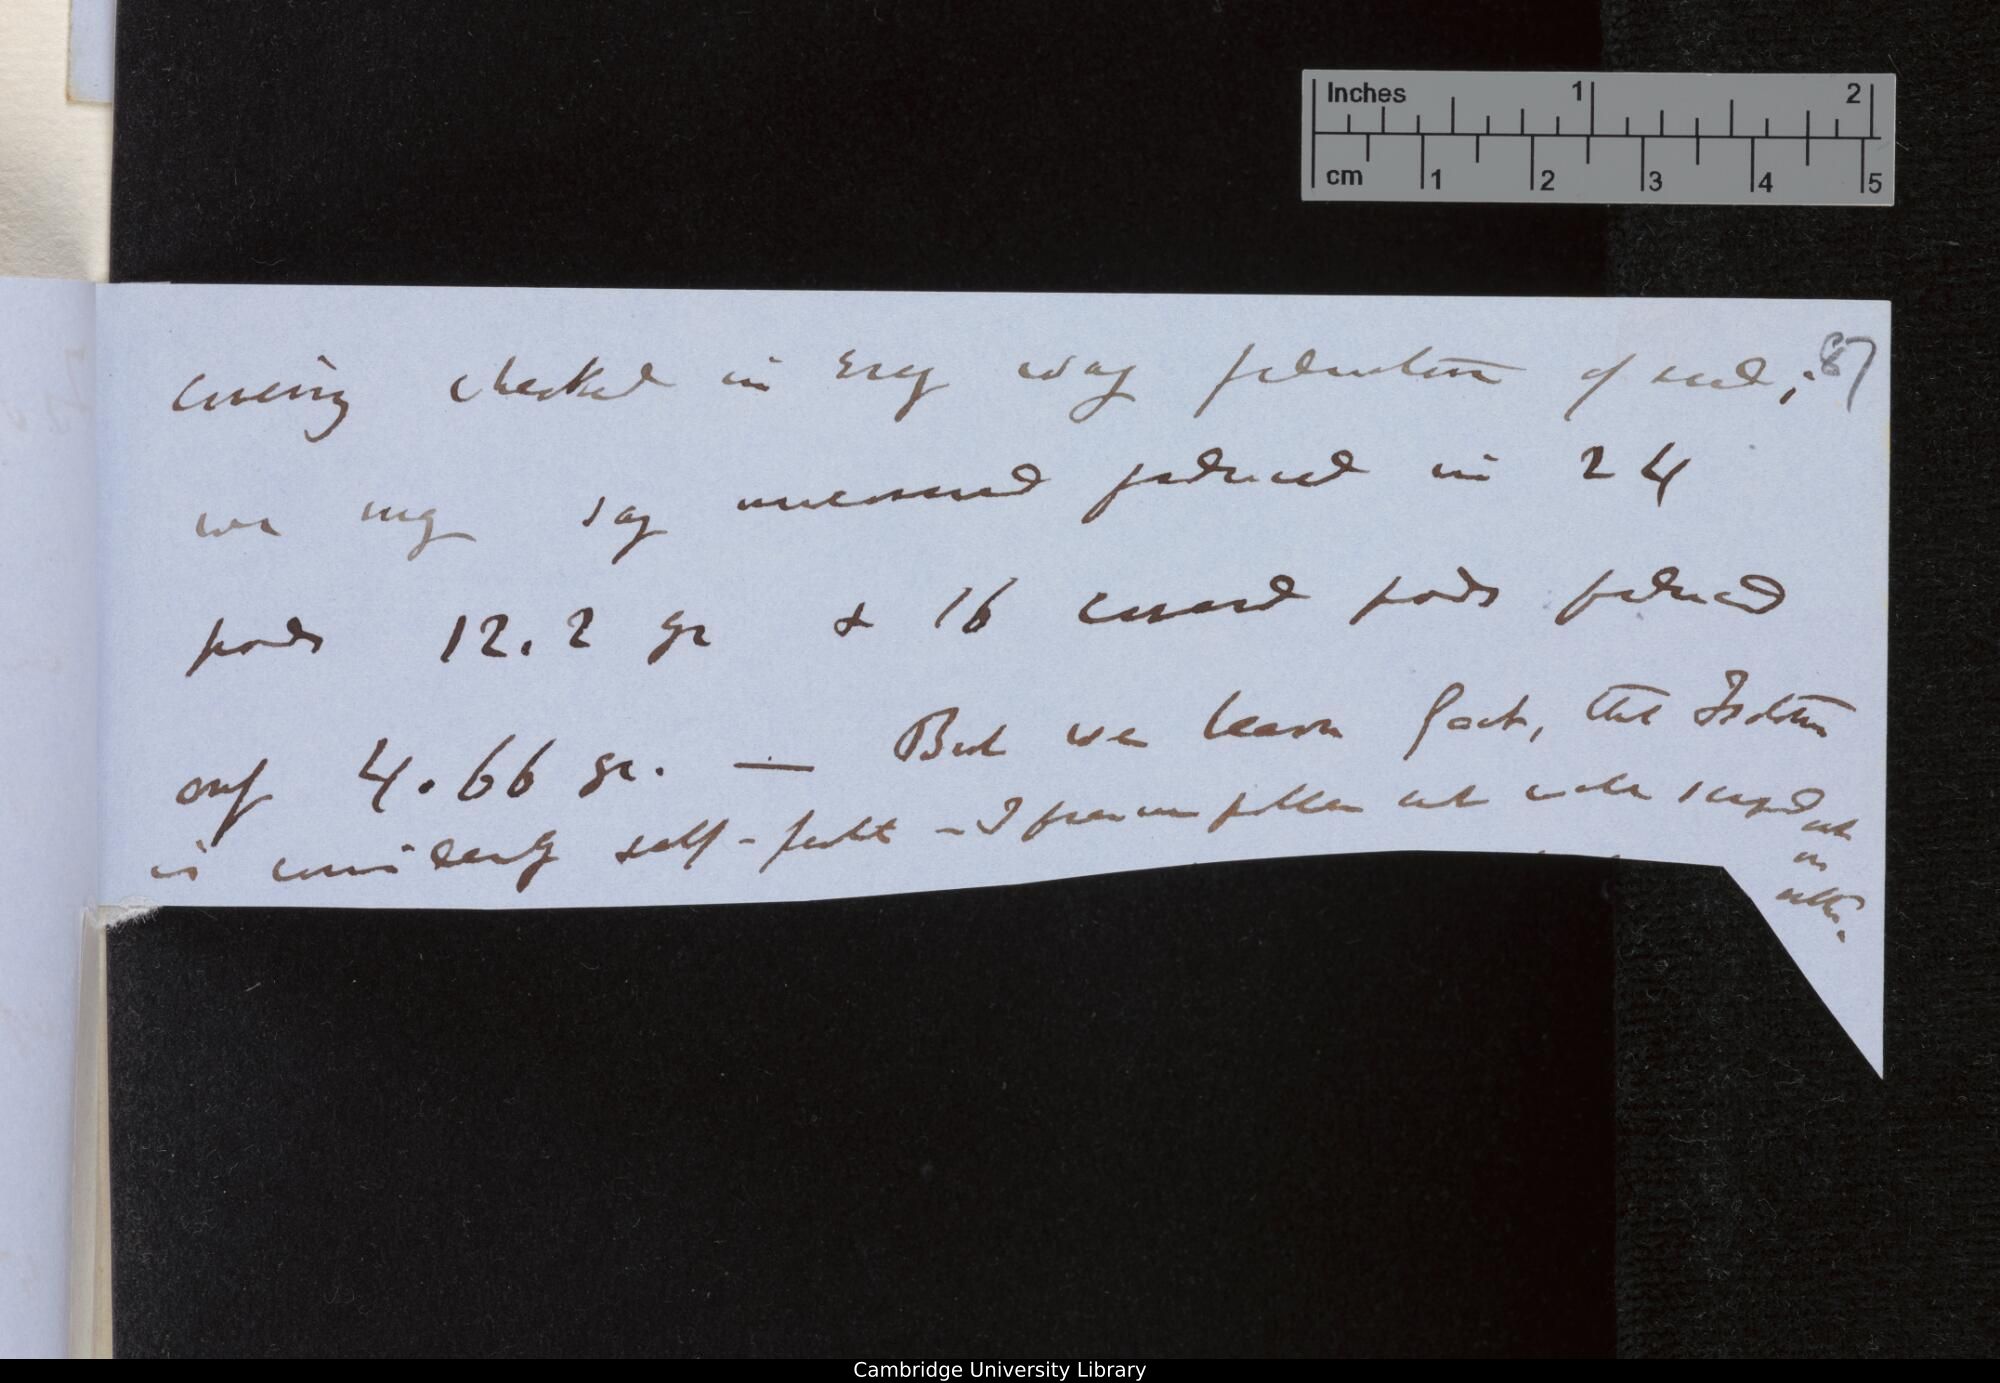 Inches 1 2
cm 1 2 3 4 5
87
covering checked in every way production of seed;
we may say uncovered produced in 24
pods 12.2 gr & 16 covered pods produced
only 4.66 gr. — But we learn fact, that
is considerably self-fertile — I presume pollen
in
Cambridge University Library